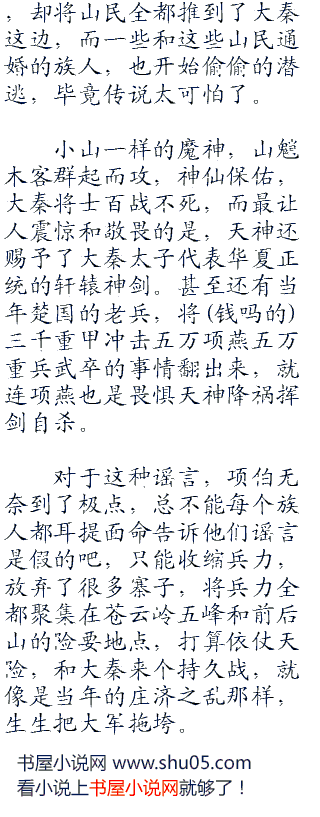 ，却将山民全都推到了大秦
这边，而一些和这些山民通
婚的族人，也开始偷偷的潜
逃，毕竟传说太可怕了。
小山一样的魔神，山魈
木客群起而攻，神仙保佑，
大秦将士百战不死，而最让
人震惊和敬畏的是，天神还
赐予了大秦太子代表华夏正
统的轩辕神剑。甚至还有当
年楚国的老兵，将(钱吗的)
三千重甲冲击五万项燕五万
重兵武卒的事情翻出来，就
连项燕也是畏惧天神降祸挥
剑自杀。
对于这种谣言，项伯无
奈到了极点，总不能每个族
人都耳提面命告诉他们谣言
是假的吧，只能收缩兵力，
放弃了很多寨子，将兵力全
都聚集在苍云岭五峰和前后
山的险要地点，打算依仗天
险，和大秦来个持久战，就
像是当年的庄济之乱那样，
生生把大军拖垮。
书屋小说网 www.shu05.com
看小说上书屋小说网就够了！